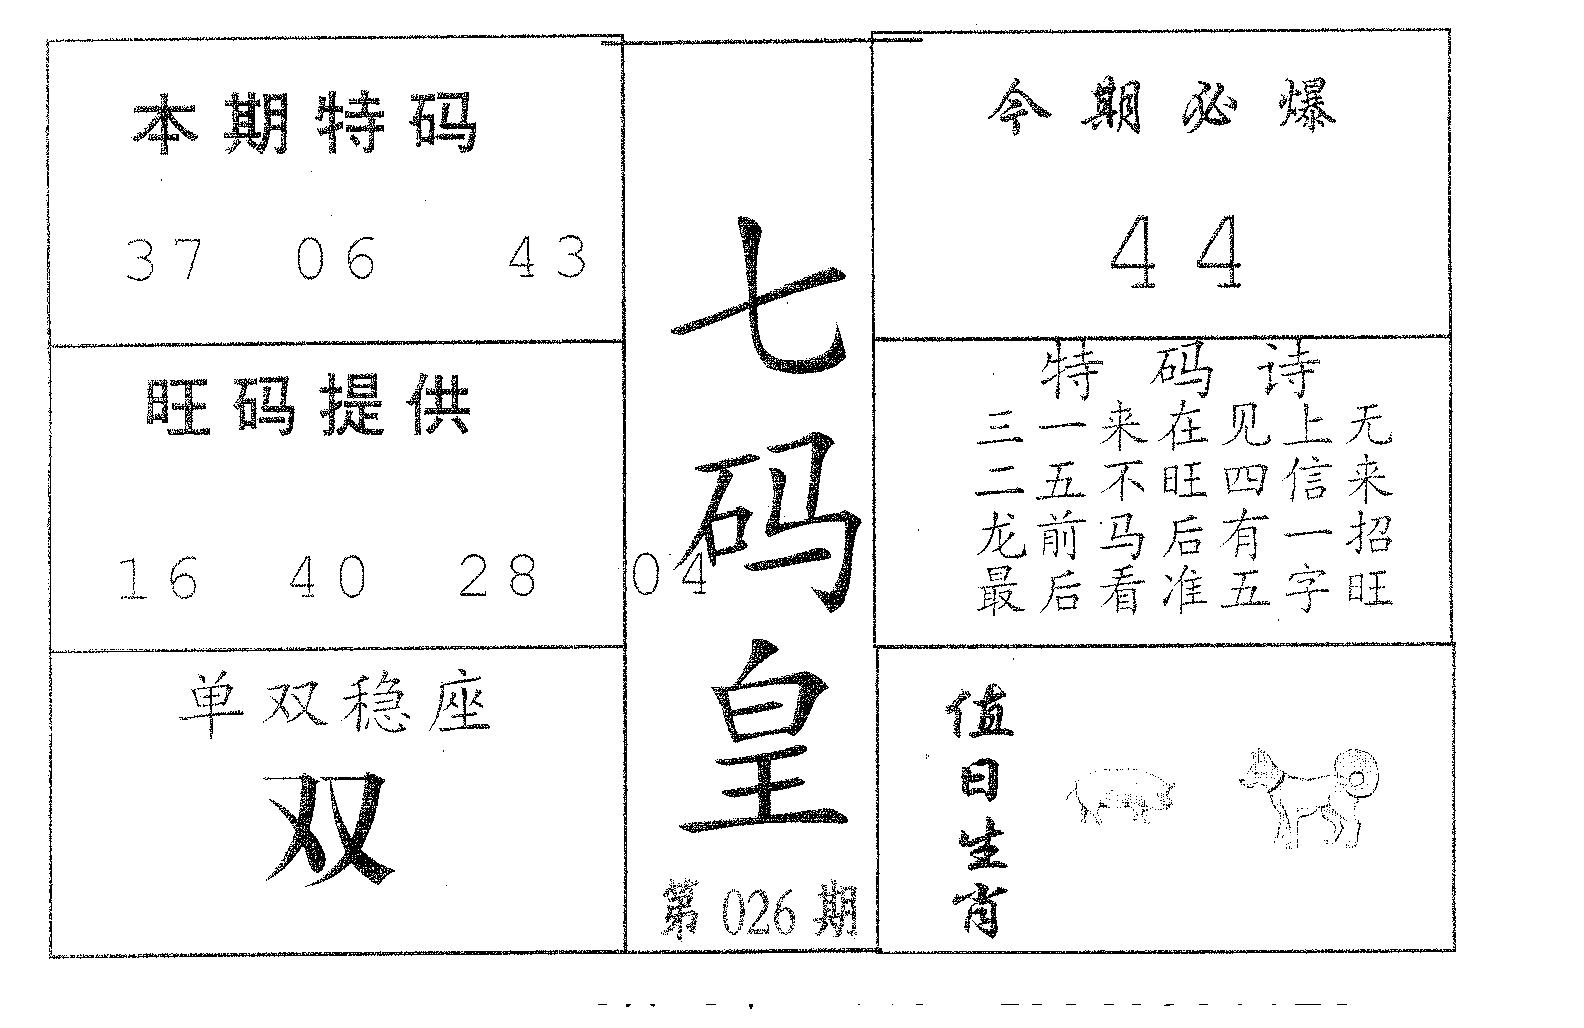 本期特码
37 06 43
旺码提供
16 40 28 04
单双稳座
双
七码皇
第026期
今期必爆
44
特码诗
三一来在见上无
二五不旺四信来
龙前马后有一招
最后看准五字旺
值日生肖